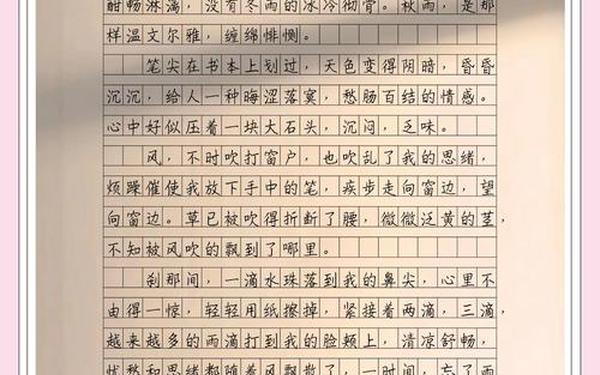 酣畅淋漓，没有冬雨的冰冷彻骨。秋雨，是那
样温文尔雅，缠绵悱恻。
笔尖在书本上划过，天色变得阴暗，昏昏
沉沉，给人一种晦涩落寞，愁肠百结的情感。
心中好似压着一块大石头，沉闷，乏味。
风，不时吹打窗户，也吹乱了我的思绪，
烦躁催使我放下手中的笔，疾步走向窗边，望
向窗边。草已被吹得折断了腰，微微泛黄的茎，
不知被风吹的飘到了哪里。
刹那间，一滴水珠落到我的鼻尖，心里不
由得一惊，轻轻用纸擦掉，紧接着两滴，三滴，
越来越多的雨滴打到我的脸颊上，清凉舒畅，
忧愁和思绪都随着风飘散了，一时间，忘了雨